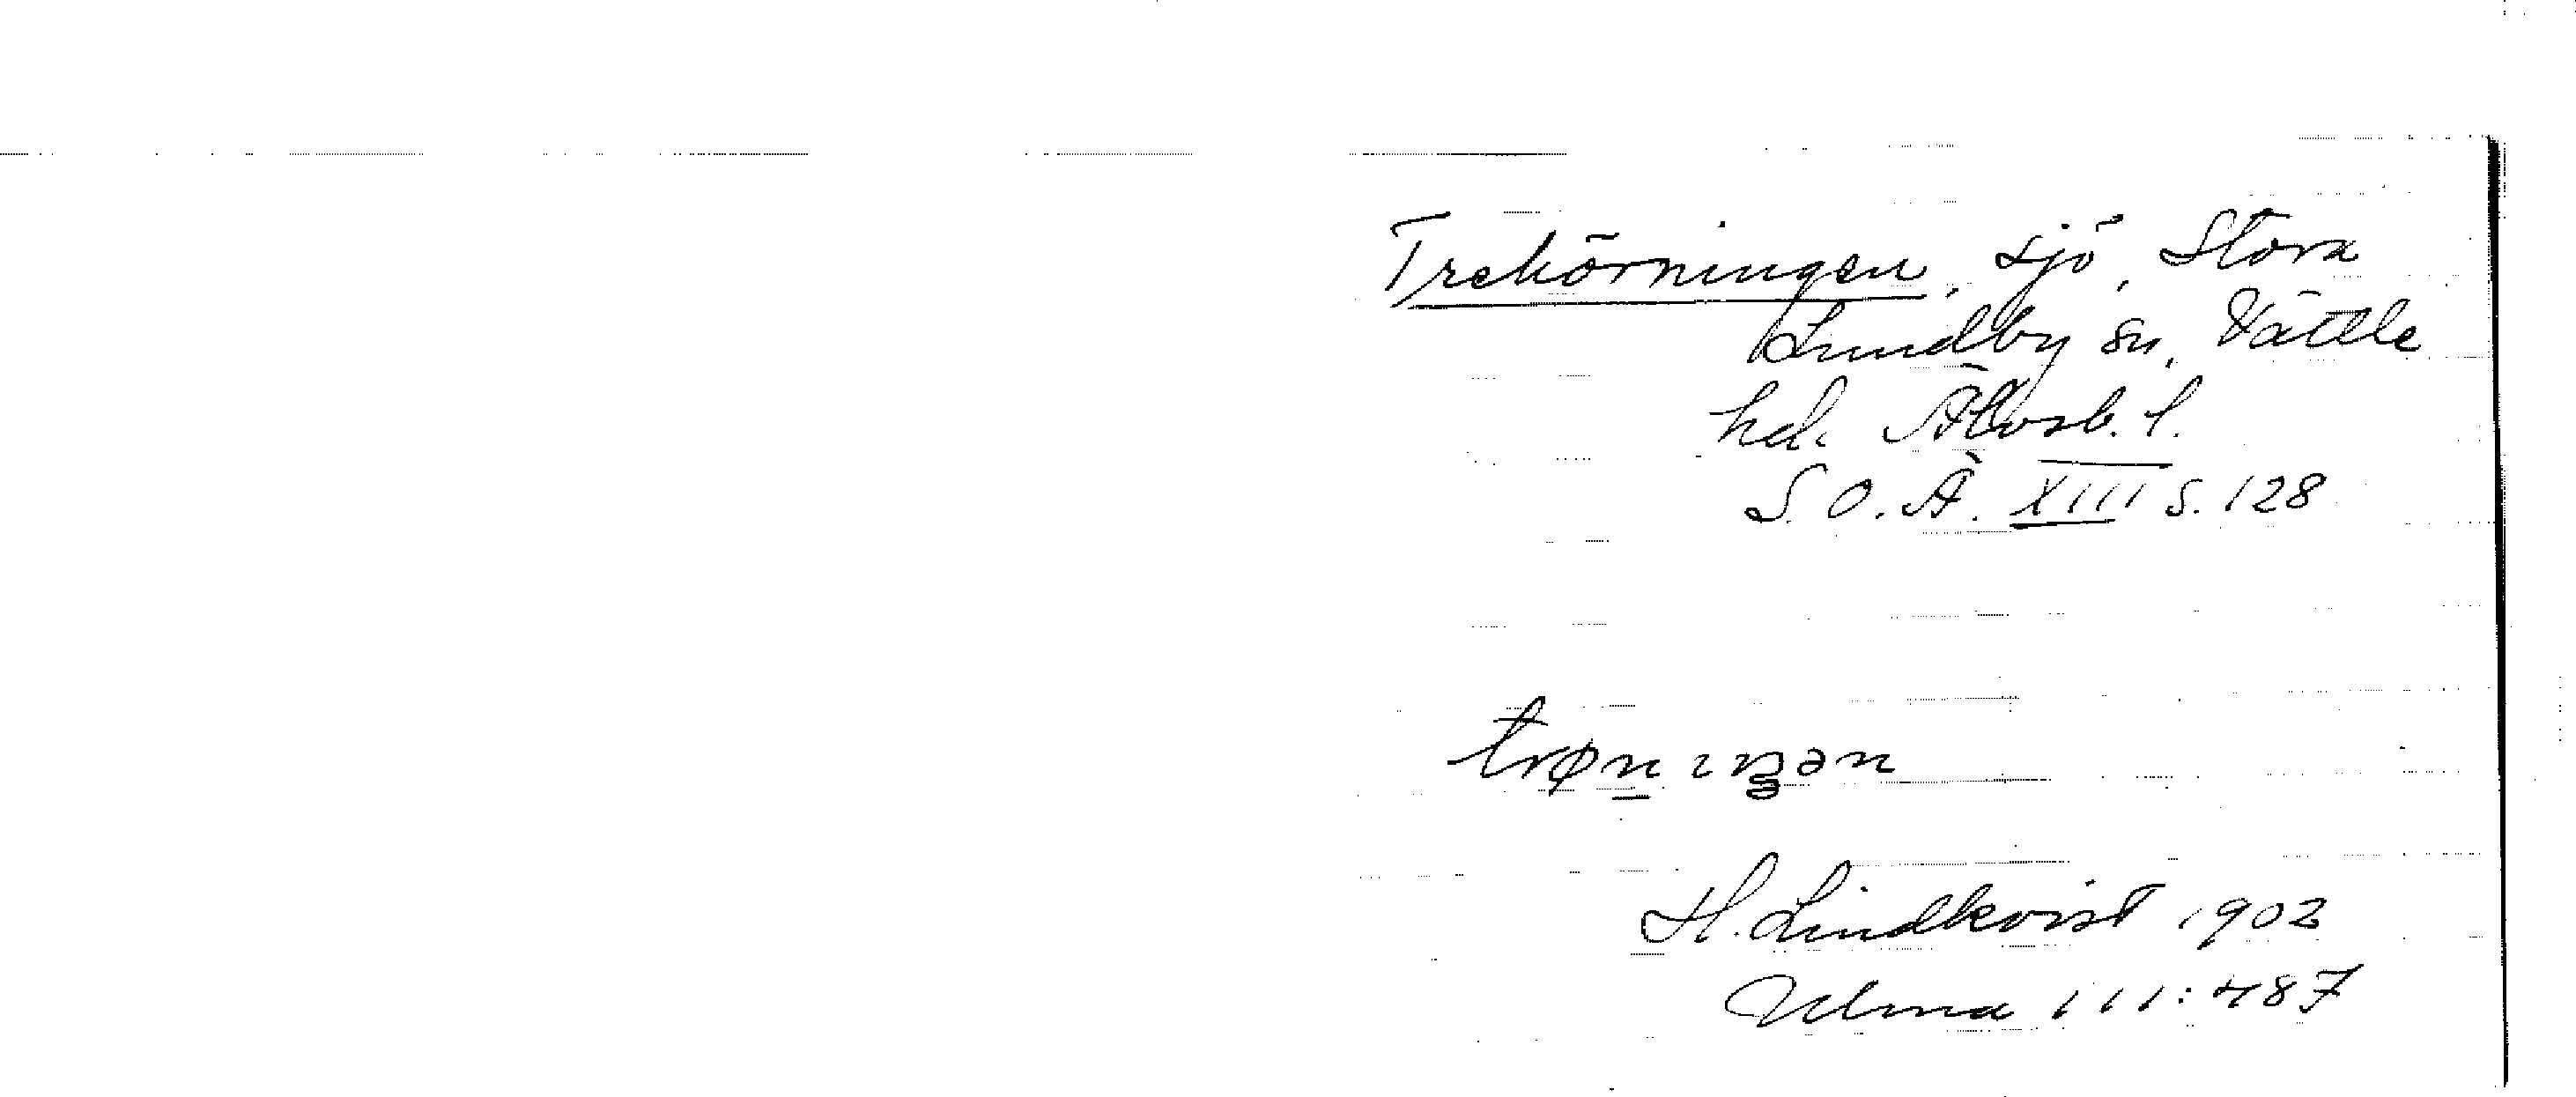 Trehörningen, sjö, Stora
Lundby sn, Vättle
hd. Älvsb. l.
S. O. Ä. XIII s. 128
trøn ıŋən
H. Lindkvist 1902
Ulma 111:487